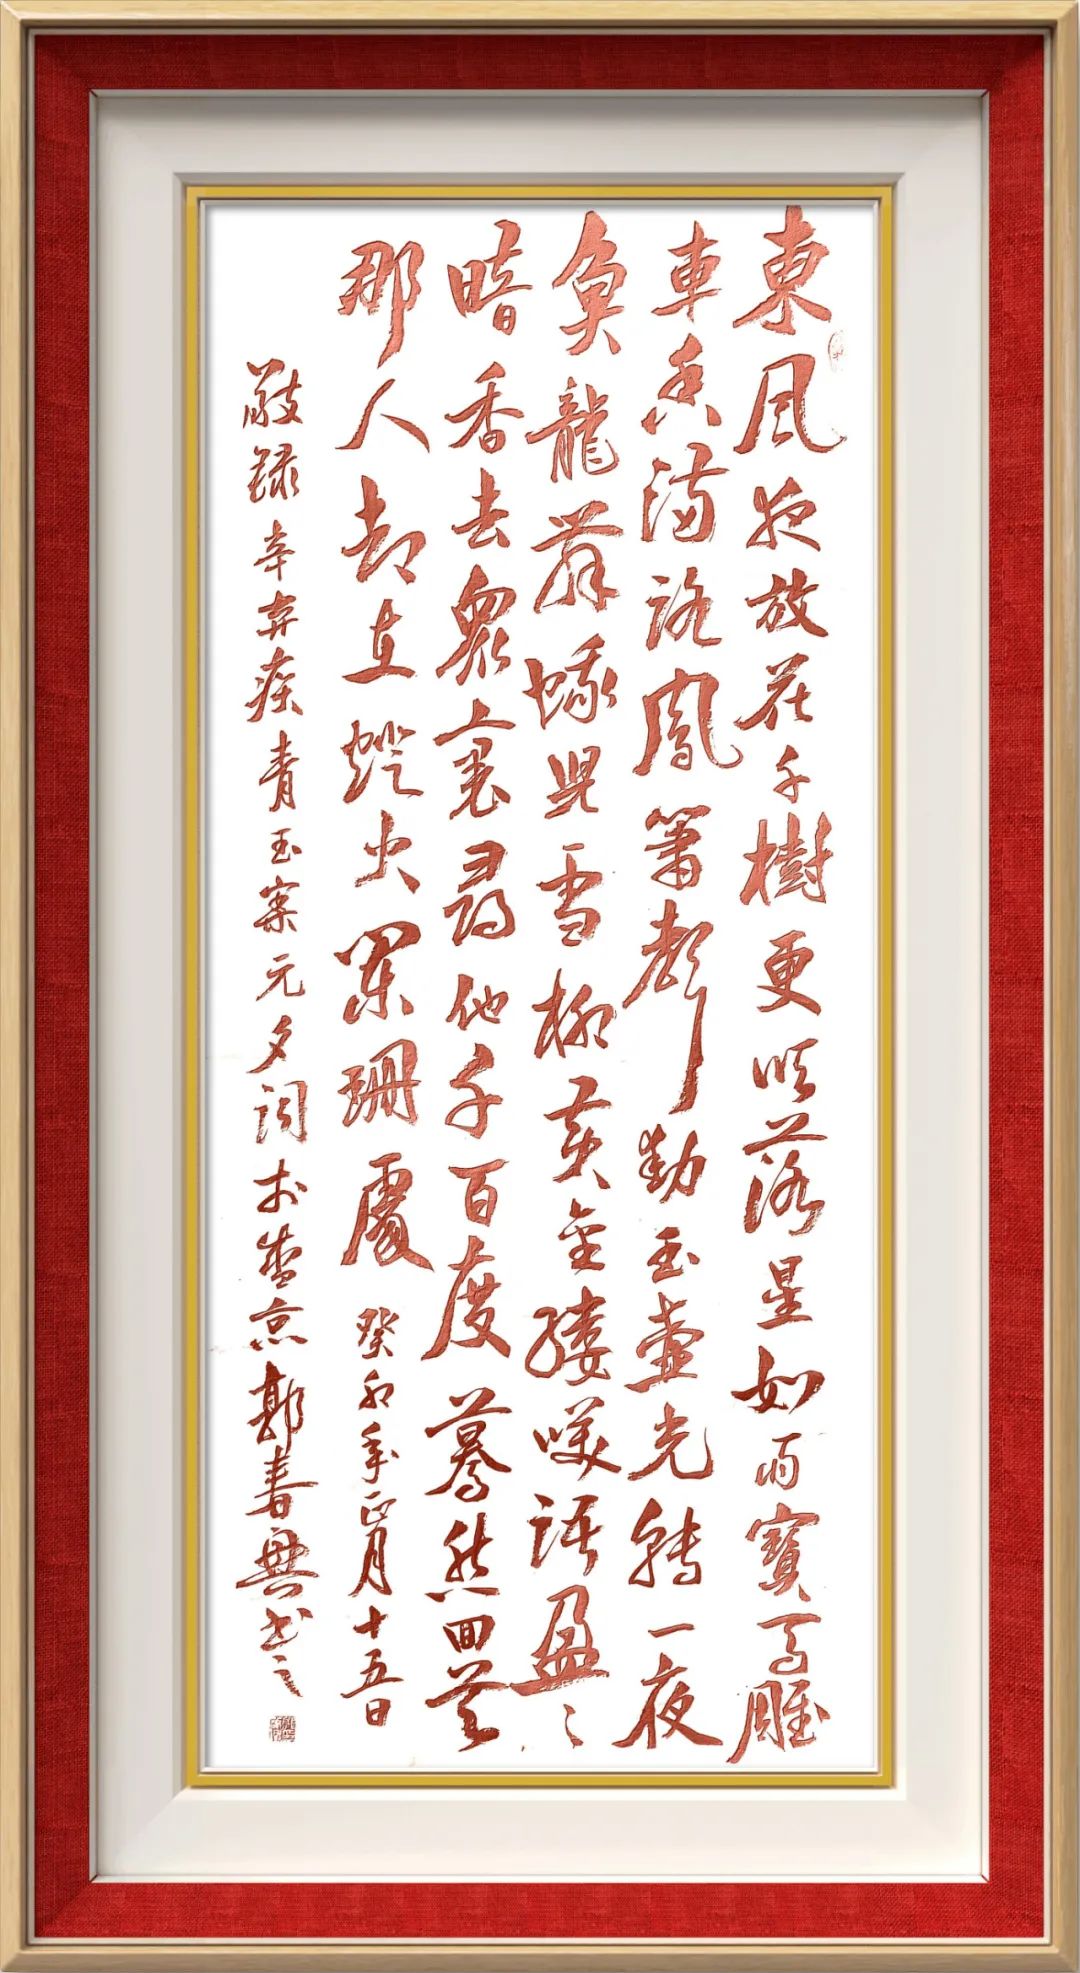 東風夜放花千樹更吹落星如雨寶馬雕
車香滿路鳳簫聲動玉壺光轉一夜
魚龍舞蛾兒雪柳黃金縷咲語盈〻
暗香去眾裏尋他千百度驀然回首
那人却在燈火闌珊處 癸卯年正月十五日
敬録辛弃疾青玉案元夕詞於京春興书之